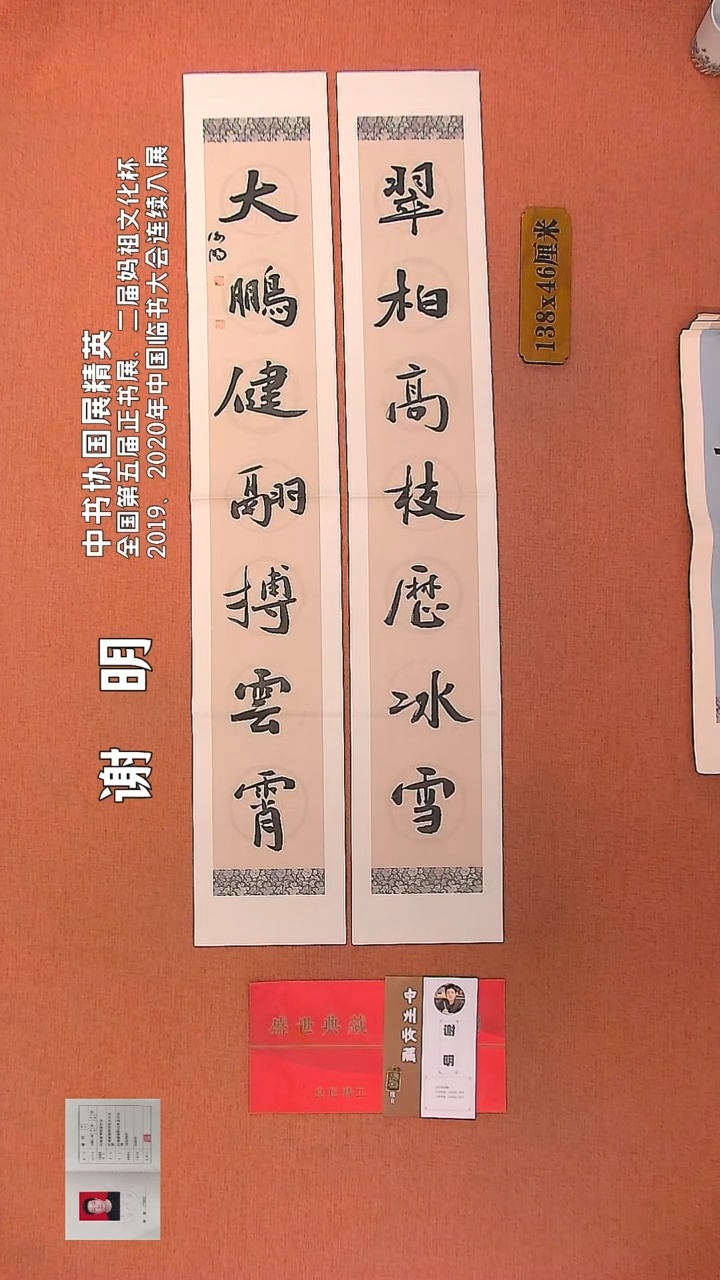 翠柏高枝歷冰雪
大鵬健翮搏雲霄
谢明
138x46厘米
中书协国展精英
全国第五届正书展、二届妈祖文化杯
2019、2020年中国临书大会连续入展
谢 明
盛世典藏
谢明